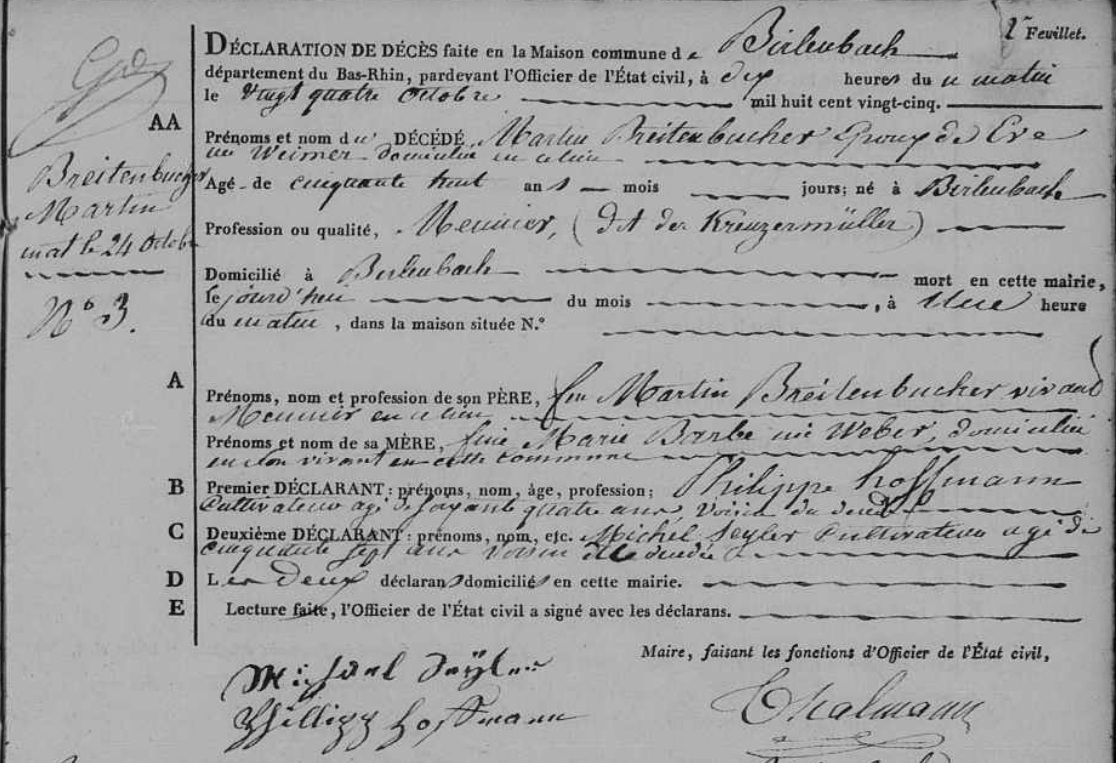 2me Feuillet.
DÉCLARATION DE DÉCÈS faite en la Maison commune de Birlenbach
département du Bas-Rhin, pardevant l'Officier de l'État civil, à dix heures du matin
le Vingt quatre Octobre mil huit cent vingt-cinq.
AA
Prénoms et nom du DÉCÉDÉ, Martin Breitenbucher Epoux de Eve
née Weimer domicilié en ce lieu
Breitenbucher
Martin
mort le 24 Octobre
N° 3.
Agé de cinquante huit ans mois jours; né à Birlenbach
Profession ou qualité, Meunier, (dit der Kreuzermüller)
Domicilié à Birlenbach mort en cette mairie,
le jourd'hui du mois , à Une heure
du matin, dans la maison située N.°
A
Prénoms, nom et profession de son PÈRE, feu Martin Breitenbucher vivant
Meunier en ce lieu
Prénoms et nom de sa MÈRE, feue Marie Barbe née Weber, domiciliée
en son vivant en cette commune
B
Premier DÉCLARANT: prénoms, nom, âge, profession; Philippe Hoffmann
Cultivateur agé de soixante quatre ans, voisin du decédé
C
Deuxième DÉCLARANT: prénoms, nom, etc. Michel Seyler Cultivateur agé de
cinquante sept ans voisin du decédé
D
Les deux déclarans domiciliés en cette mairie.
E
Lecture faite, l'Officier de l'État civil a signé avec les déclarans.
Maire, faisant les fonctions d'Officier de l'État civil,
Michael Seyler
Philipp Hoffmann
Thalmann